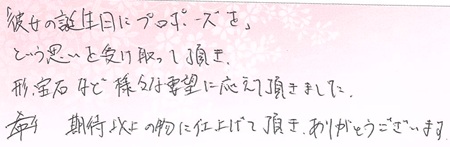 「彼女の誕生日にプロポーズを」
という思いを受け取って頂き、
形、宝石など様々な要望に応えて頂きました。
期待以上の物に仕上げて頂き、ありがとうございます